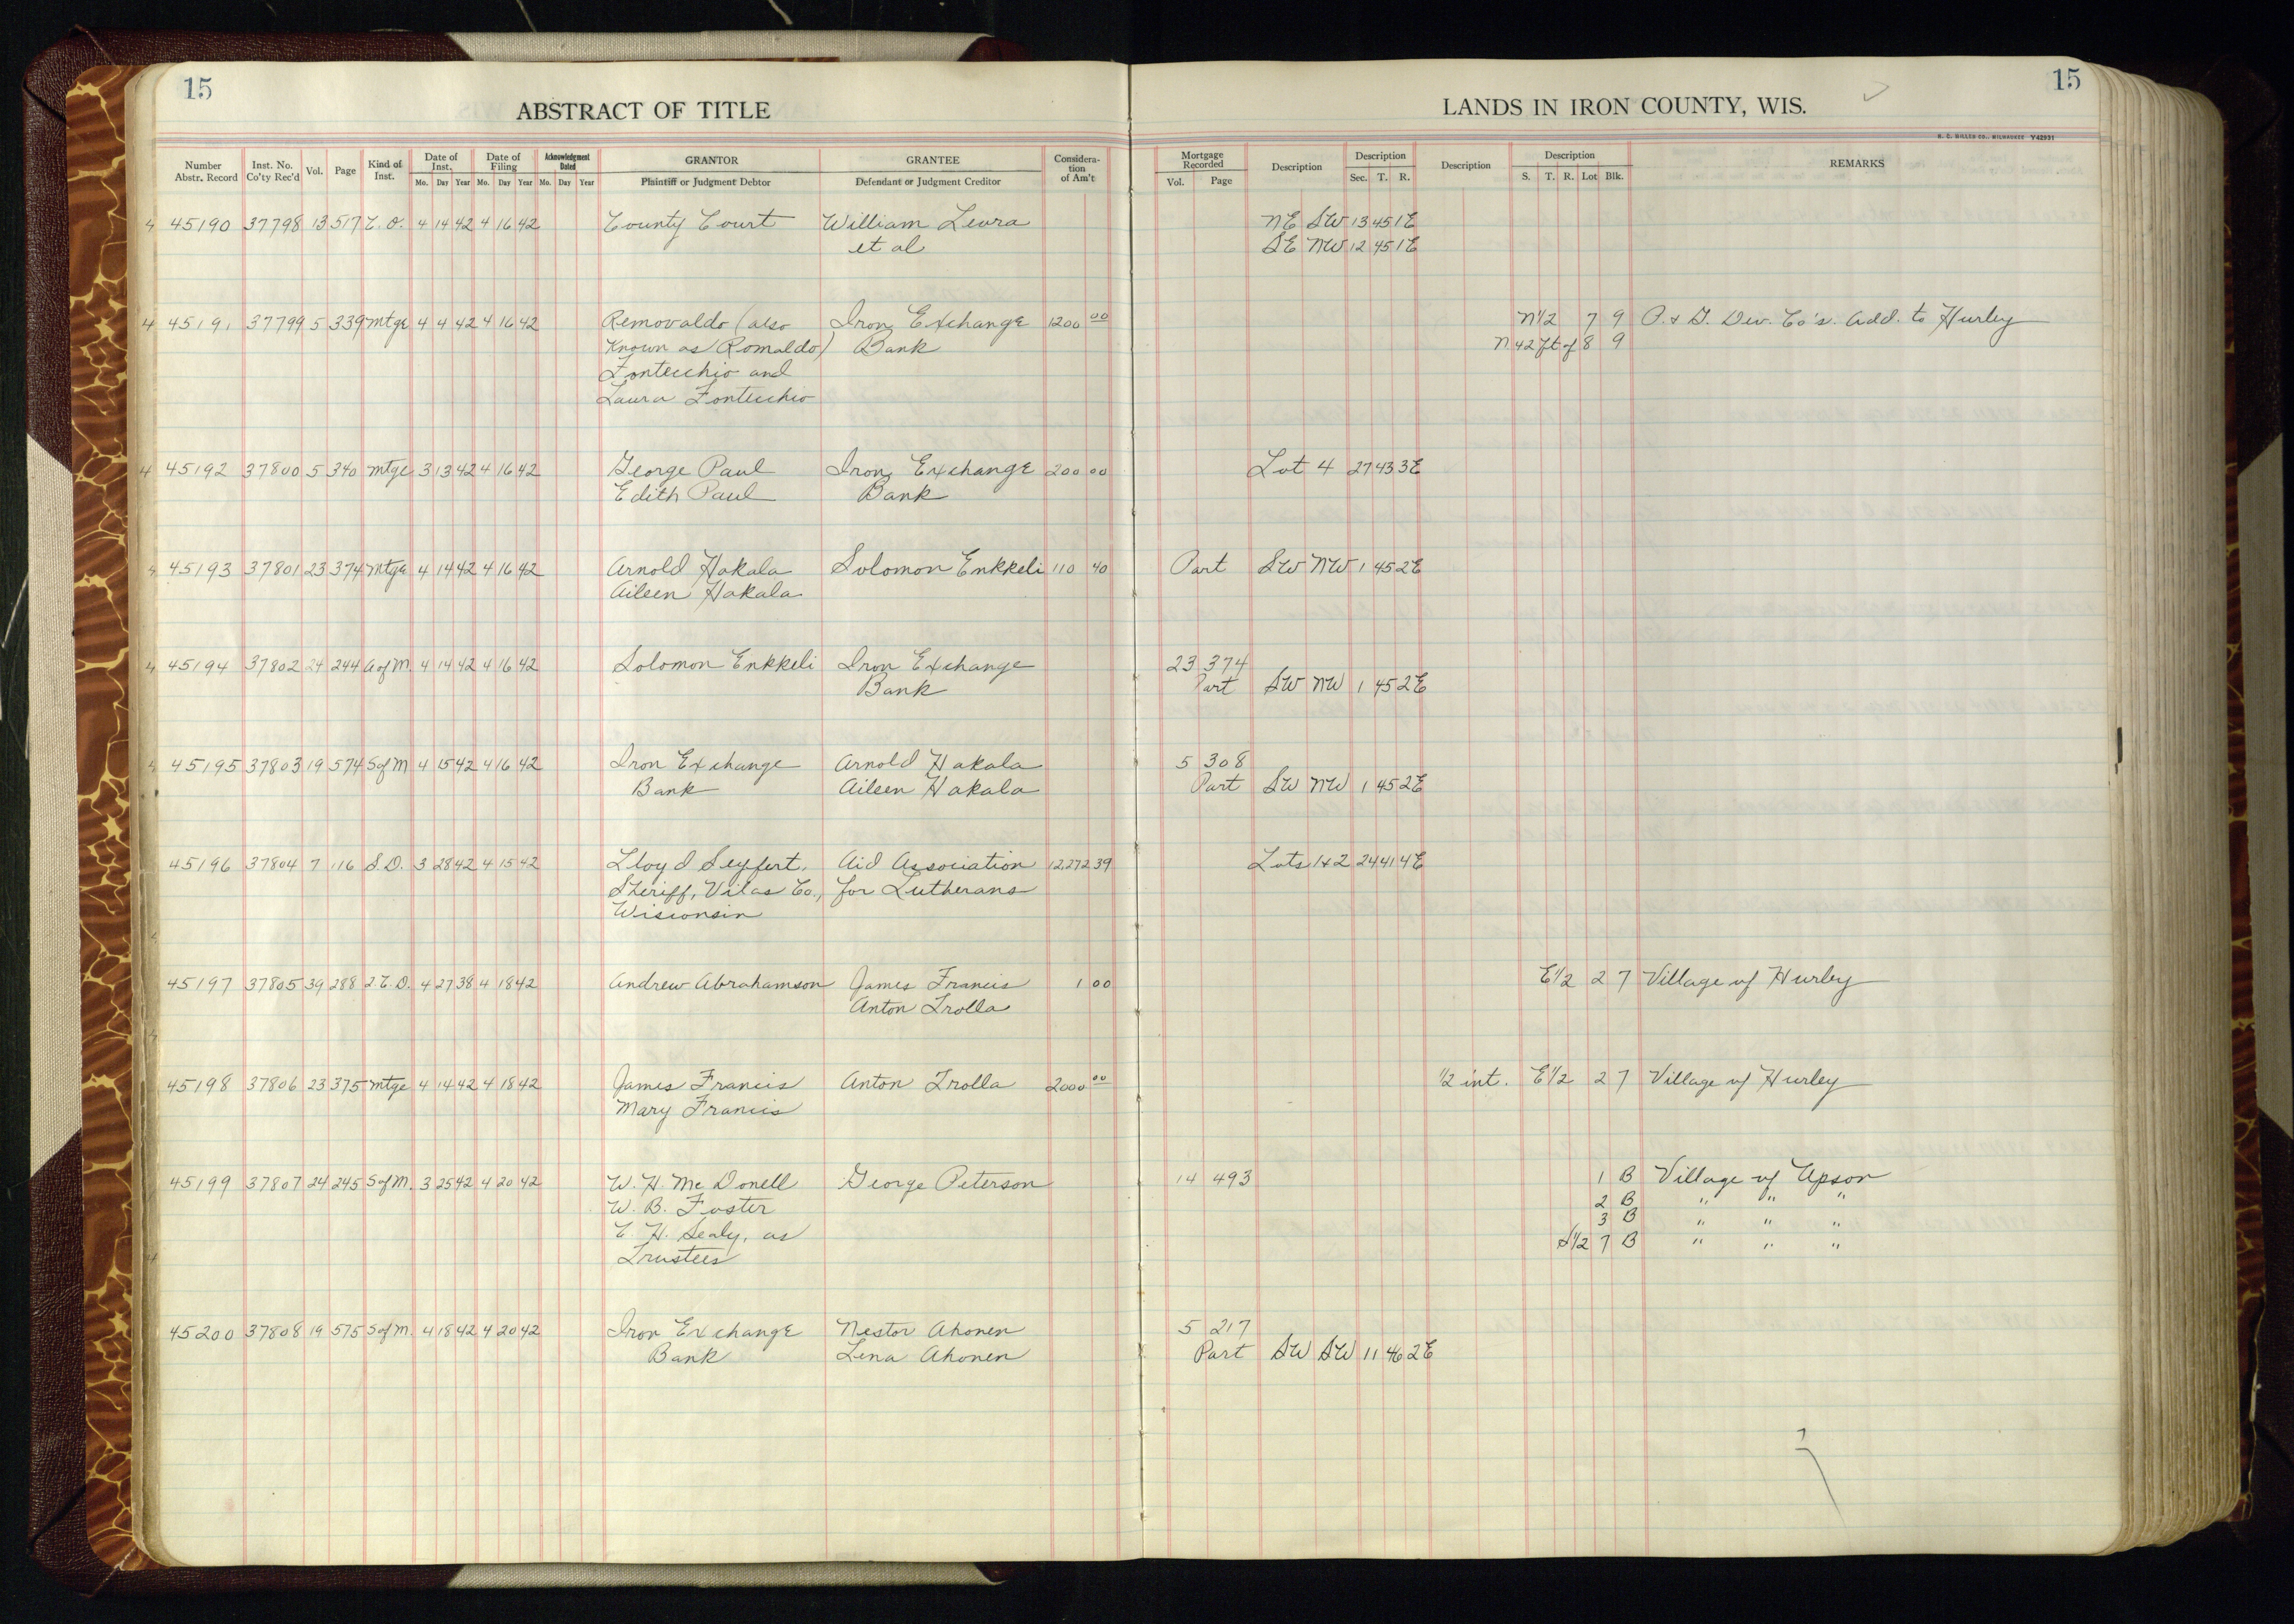 15
15
ABSTRACT OF TITLE
LANDS IN IRON COUNTY, WIS.
H. C. MILLER CO., MILWAUKEE Y42931
Number Abstr. Record Inst. No. Co'ty Rec'd Vol. Page Kind of Inst. Date of Inst. Mo. Day Year Date of Filing Mo. Day Year Acknowledgment Dated Mo. Day Year GRANTOR Plaintiff or Judgment Debtor GRANTEE Defendant or Judgment Creditor Considera-tion of Am't Mortgage Recorded Vol. Page Description Description Sec. T. R. Description Description S. T. R. Lot Blk. REMARKS
4 45190 37798 13 517 C. O. 4 14 42 4 16 42 County Court William Leura NE SW 13 45 1E
et al SE NW 12 45 1E
4 45191 37799 5 339 Mtge 4 4 42 4 16 42 Removaldo (also Iron Exchange 1200 00 N1/2 7 9 P. & G. Dev. Co's. Add. to Hurley
Known as Romaldo) Bank N. 42 ft of 8 9
Fontecchio and
Laura Fontecchio
4 45192 37800 5 340 Mtge 3 13 42 4 16 42 George Paul Iron Exchange 200 00 Lot 4 27 43 3E
Edith Paul Bank
4 45193 37801 23 374 Mtge 4 14 42 4 16 42 Arnold Hakala Solomon Enkkeli 110 40 Part SW NW 1 45 2E
Aileen Hakala
4 45194 37802 24 244 A of M. 4 14 42 4 16 42 Solomon Enkkeli Iron Exchange 23 374
Bank Part SW NW 1 45 2E
4 45195 37803 19 574 S of M 4 15 42 4 16 42 Iron Exchange Arnold Hakala 5 308
Bank Aileen Hakala Part SW NW 1 45 2E
45196 37804 7 116 S. D. 3 28 42 4 15 42 Lloyd Seyfert, Aid Association 12,272 39 Lots 1 & 2 24 41 4E
Sheriff, Vilas Co., for Lutherans
Wisconsin
45197 37805 39 288 2. C. D. 4 27 38 4 18 42 Andrew Abrahamson James Francis 1 00 E1/2 2 7 Village of Hurley
Anton Trolla
45198 37806 23 375 Mtge 4 14 42 4 18 42 James Francis Anton Trolla 2000 00 1/2 int. E1/2 2 7 Village of Hurley
Mary Francis
45199 37807 24 245 S of M. 3 25 42 4 20 42 W. H. Mc Donell George Peterson 14 493 1 B Village of Upson
W. B. Foster 2 B " " "
C. H. Sealy, as 3 B " " "
Trustees S1/2 7 B " " "
45200 37808 19 575 S of M. 4 18 42 4 20 42 Iron Exchange Nestor Ahonen 5 217
Bank Lena Ahonen Part SW SW 11 46 2E